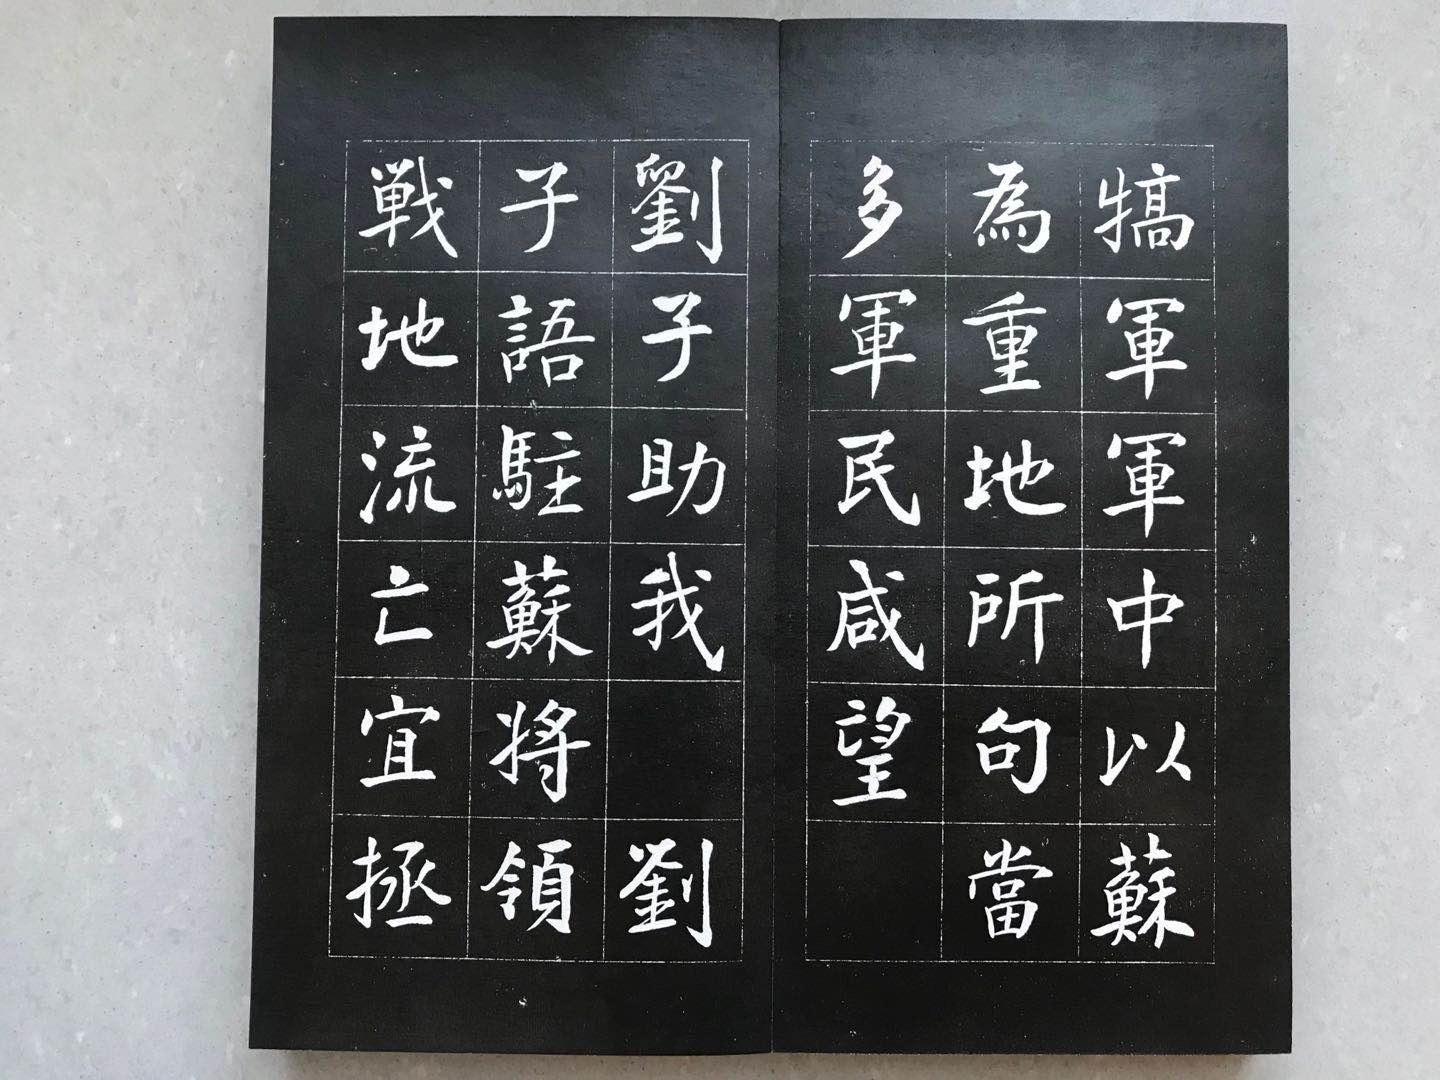 犒軍軍中以蘇
為重地所句當
多軍民咸望
劉子助我 劉
子語駐蘇將領
戦地流亡宜拯